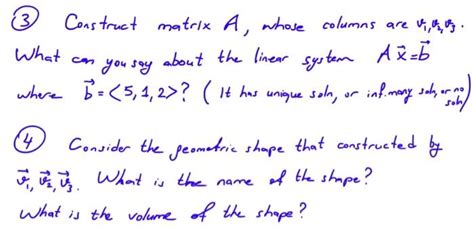 ③ Construct matrix A, whose columns are v⃗₁, v⃗₂, v⃗₃.
What can you say about the linear system A x⃗ = b⃗
where b⃗ = <5, 1, 2>? (It has unique soln, or inf. many soln, or no soln)
④ Consider the geometric shape that constructed by
v⃗₁, v⃗₂, v⃗₃. What is the name of the shape?
What is the volume of the shape?